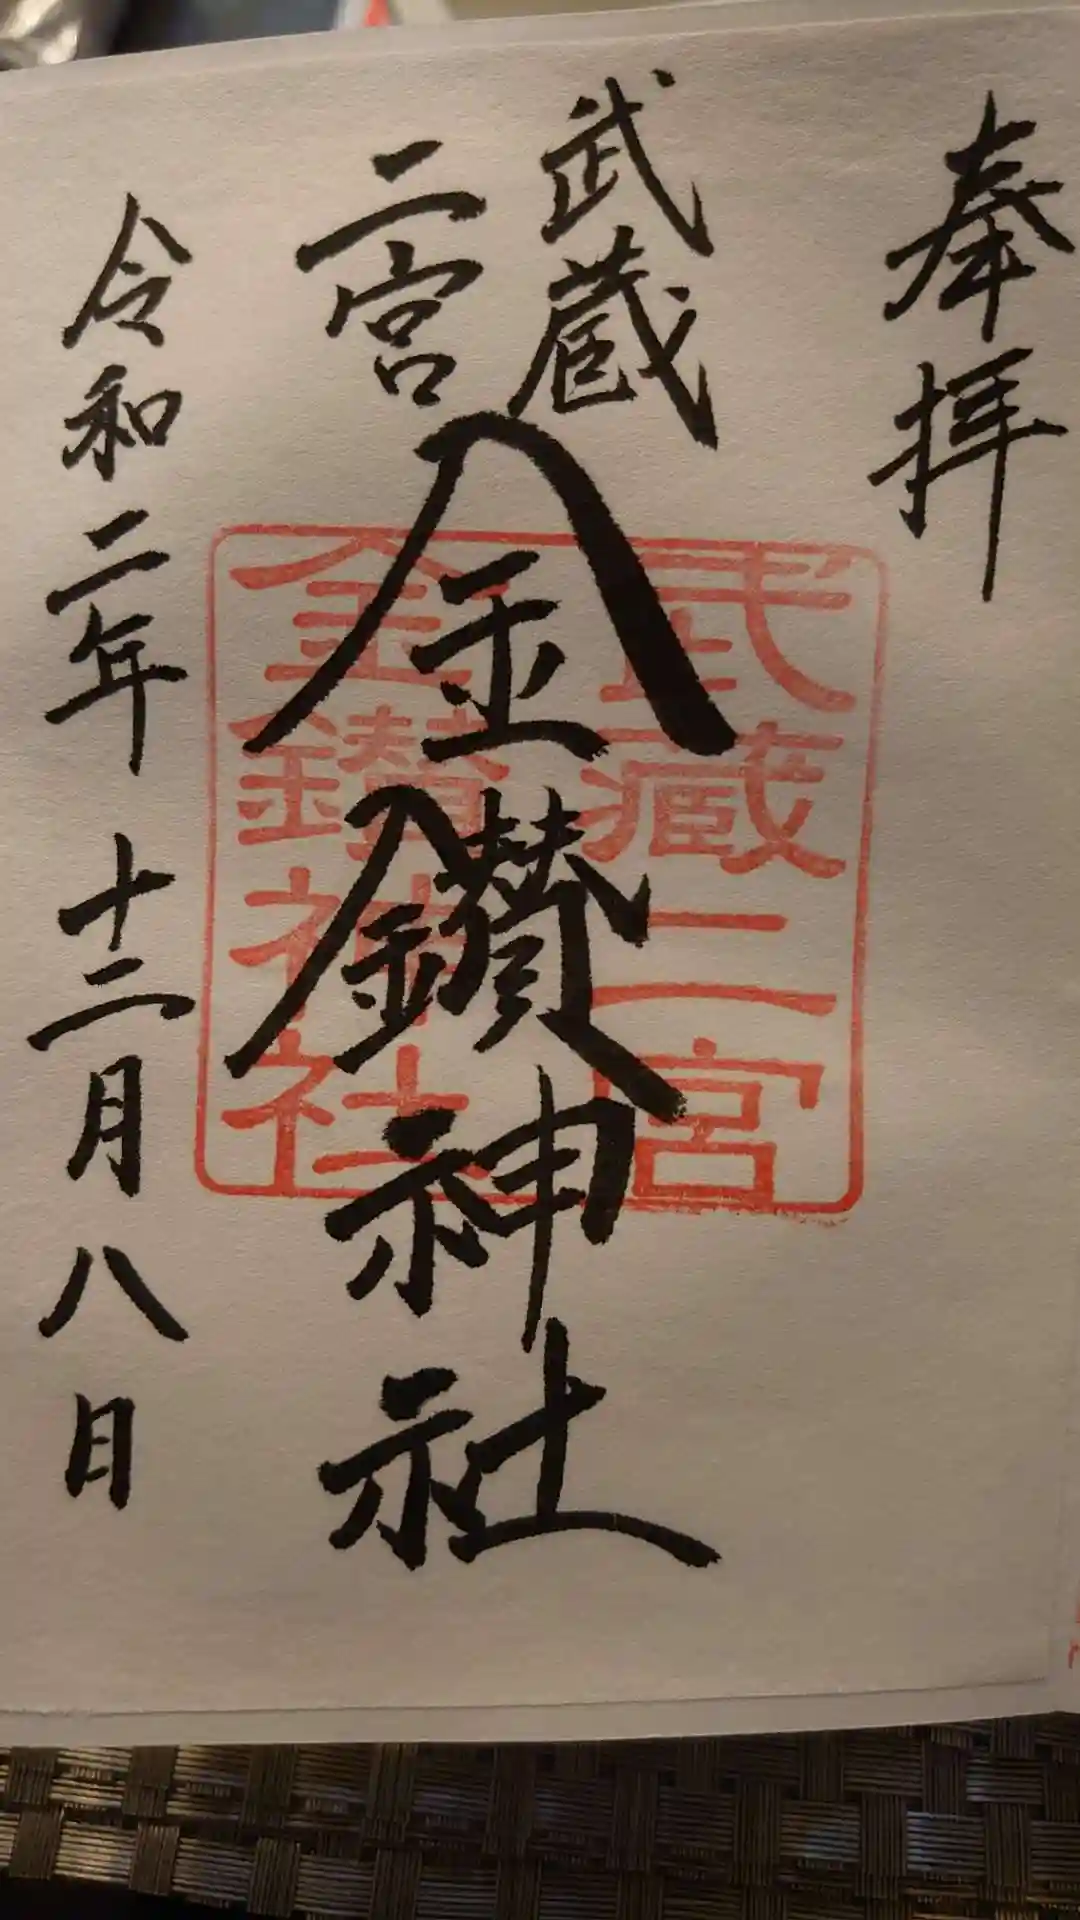 奉拝
武蔵
二宮
金鑚神社
令和二年十二月八日
武蔵二宮
金鑚神社